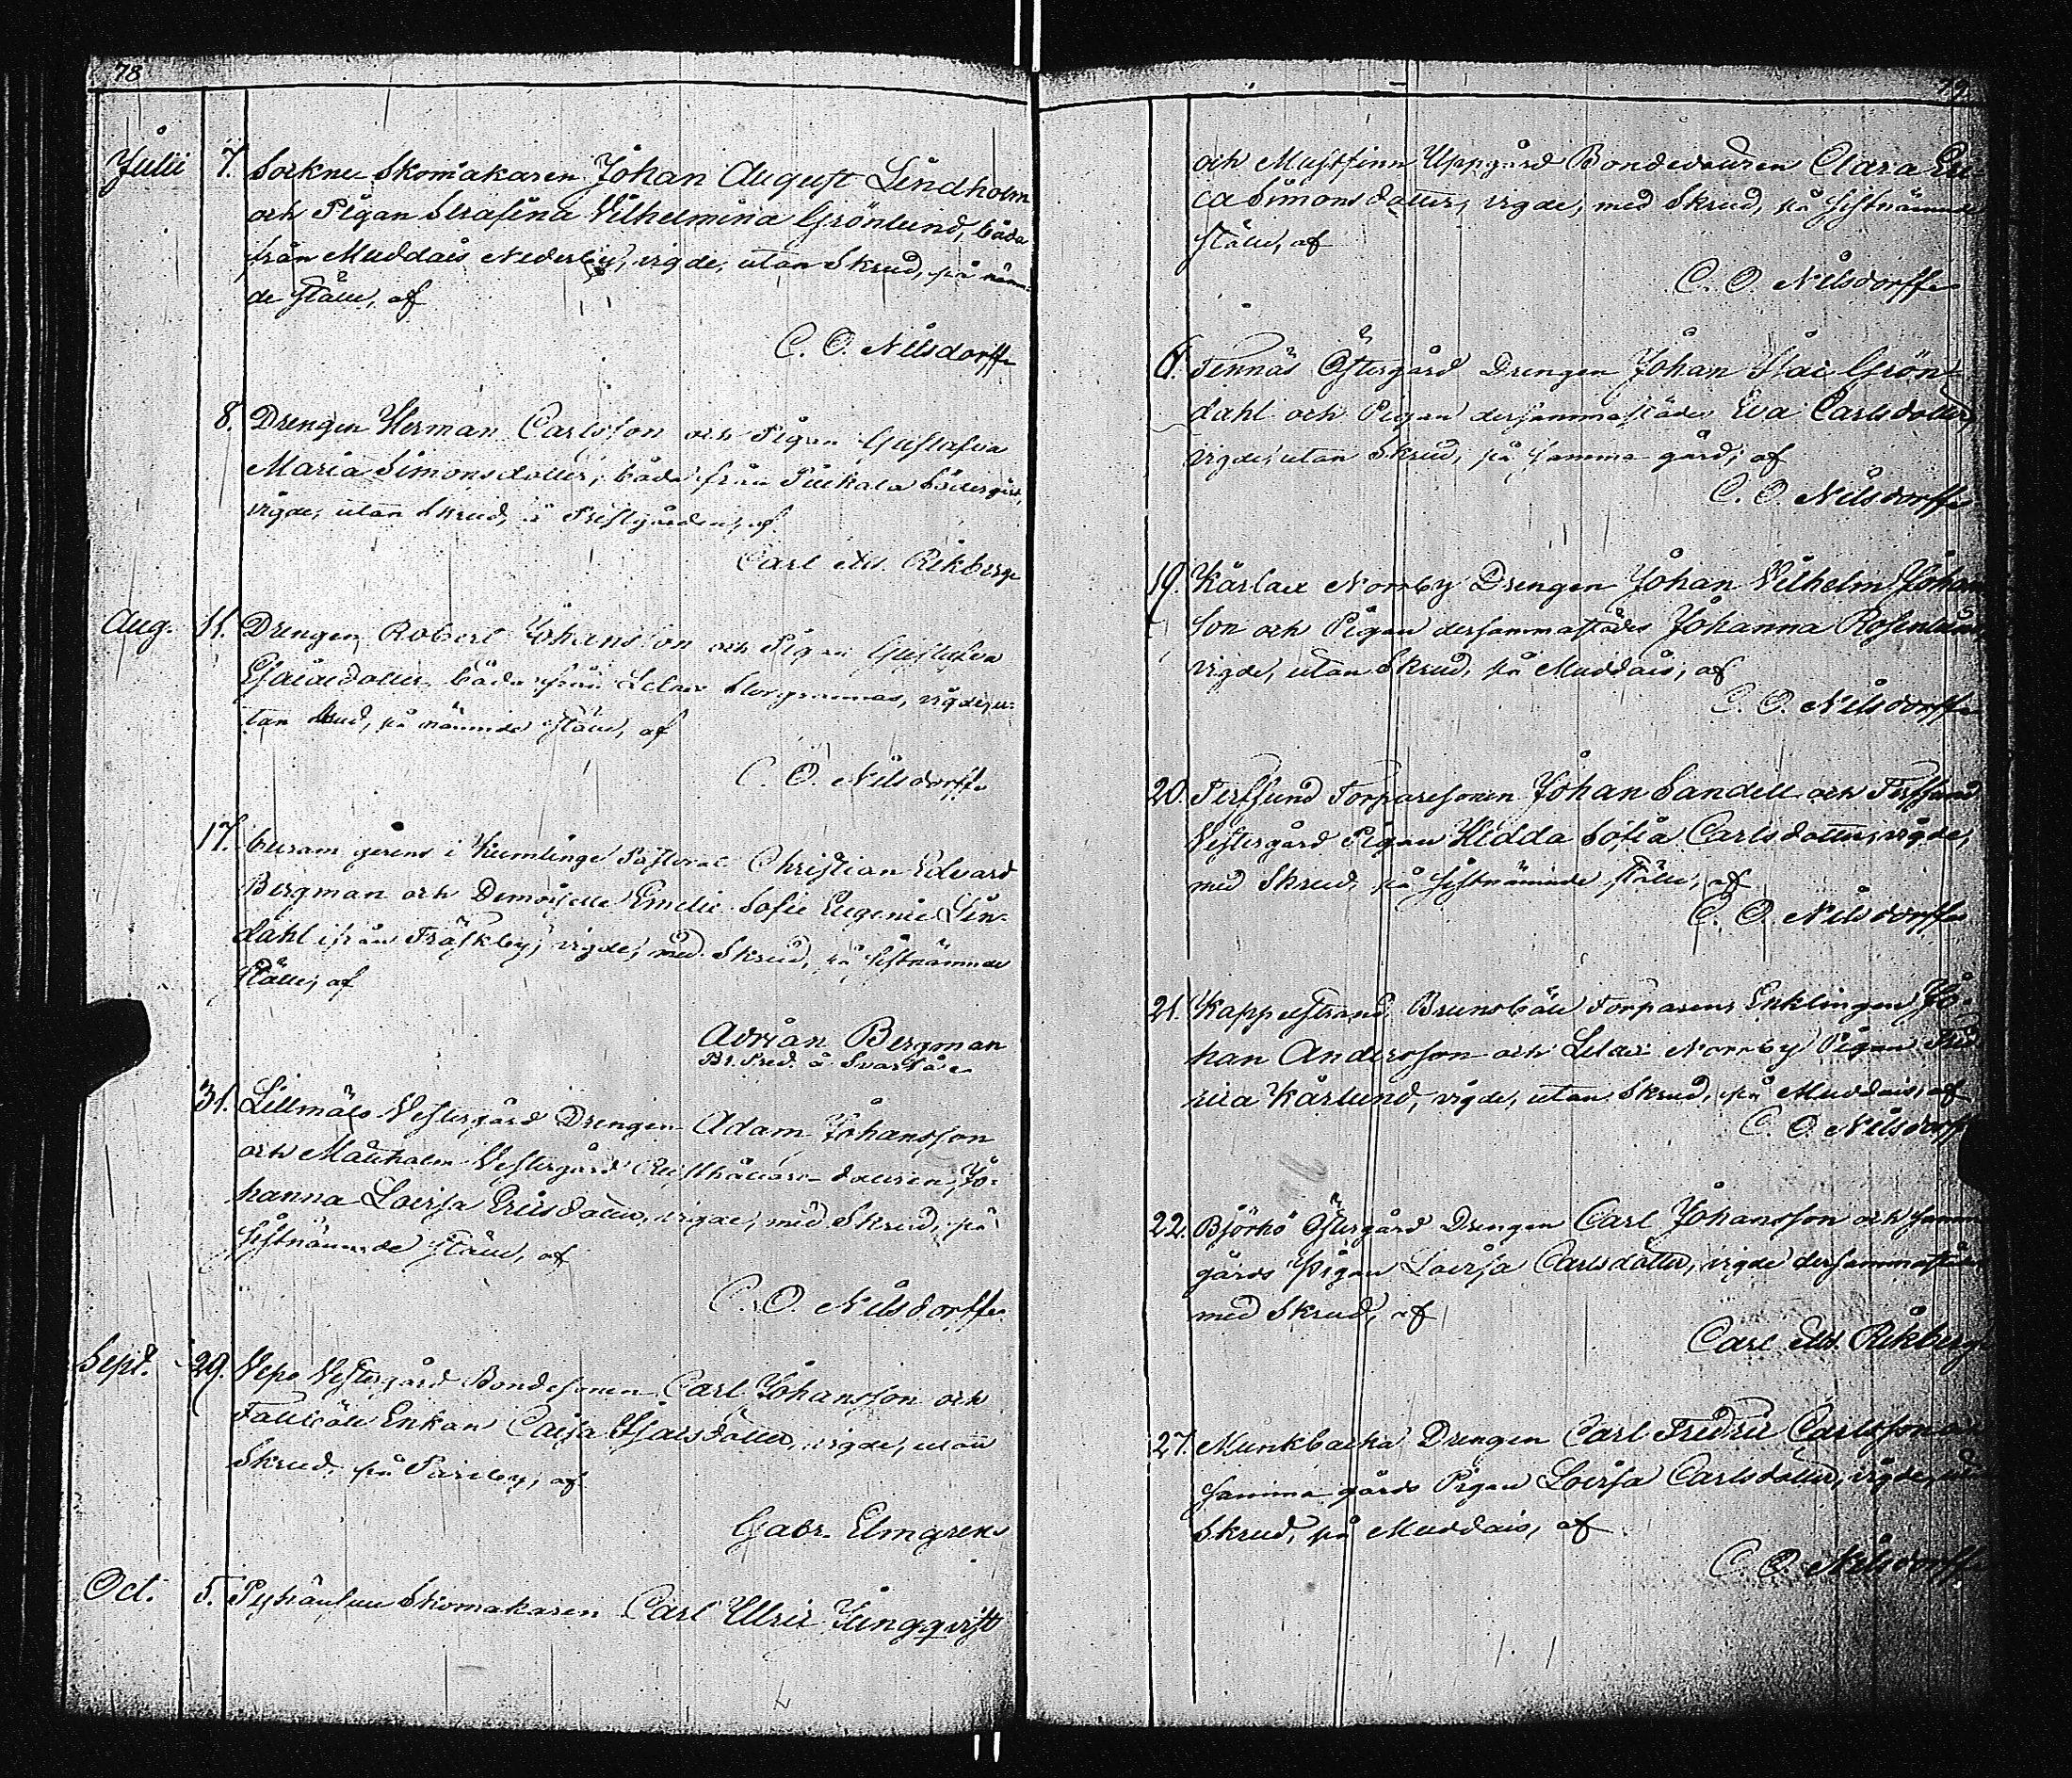 78
Julii 7. Sockne Skomakaren Johan August Lindholm
och Pigan Serafina Vilhelmina Grönlund, båda
från Muddais Nederby, vigde, utan Skrud, på nämn-
de ställe, af
C. O. Nilsdorff
8. Drengen Herman Carlsson och Pigan Gustafva
Maria Simonsdotter, båda från Piukala Södergård,
vigde, utan Skrud, i Prestgården, af
Carl Ed. Rikberg
Aug. 11. Drengen Robert Johansson och Pigan Gustafva
Esaiaedotter båda från Lelax Storgrannas, vigde, u-
tan skrud, på nämnde ställe, af
C. O. Nilsdorff
17. Curam gerens i Kumlinge Pastorat Christian Edvard
Bergman och Demoiselle Emelie Sofie Eugenie Lin-
dahl ifrån Träskby, vigde, med Skrud, på sistnämnde
ställe, af
Adrian Bergman
Br. Pred. å Svartå
31. Lillmälö Vestergård Drengen Adam Johansson
och Mattholm Vestergård Rusthållare dottren, Jo-
hanna Lovisa Ericsdotter, vigde, med Skrud, på
sistnämnde ställe, af
C. O. Nilsdorff
Sept. 29. Vepo Vestergård Bondesonen Carl Johansson och
Enkan Caisa Esaiedotter, vigde, utan
Skrud, på Pareby, af
Gabr. Elmgren
Oct. 5. Pyhäluu Skomakaren Carl Ulric Ljungqvist
79
och Mustfinn Uppgård Bondedottren Clara Eri-
ca Simonsdotter, vigde, med Skrud, på sistnämnde
ställe, af
C. O. Nilsdorff
6. Tennäs Östergård Drengen Johan Isac Grön-
dahl och Pigan dersammastädes Eva Carlsdotter,
vigde, utan Skrud, på samma gård, af
C. O. Nilsdorff
19. Kärlax Norrby Drengen Johan Vilhelm Johans
son och Pigan dersammastädes Johanna Rosenlund,
vigde, utan Skrud, på Muddais, af
C. O. Nilsdorff
20. Perfsund Torparesonen Johan Sandell och Perfsund
Vestergård Pigan Hedda Sofia Carlsdotter, vigde,
med Skrud, på sistnämnde ställe, af
C. O. Nilsdorff
21. Kappelstrand Brunsbäle Torparen, Enklingen Jo-
han Andersson och Lelax Norrby Pigan Fred
rica Karlund, vigde, utan Skrud, på Muddais, af
C. O. Nilsdorff
22. Björkö Östergård Drengen Carl Johansson och samma
gårds Pigan Lovisa Carlsdotter, vigde dersammastädes
med Skrud, af
Carl Ed. Rikberg
27. Munkbacka Drengen Carl Fredric Carlsson och
samma gårds Pigan Lovisa Carlsdotter, vigde, utan
Skrud, på Muddais, af
C. O. Nilsdorff